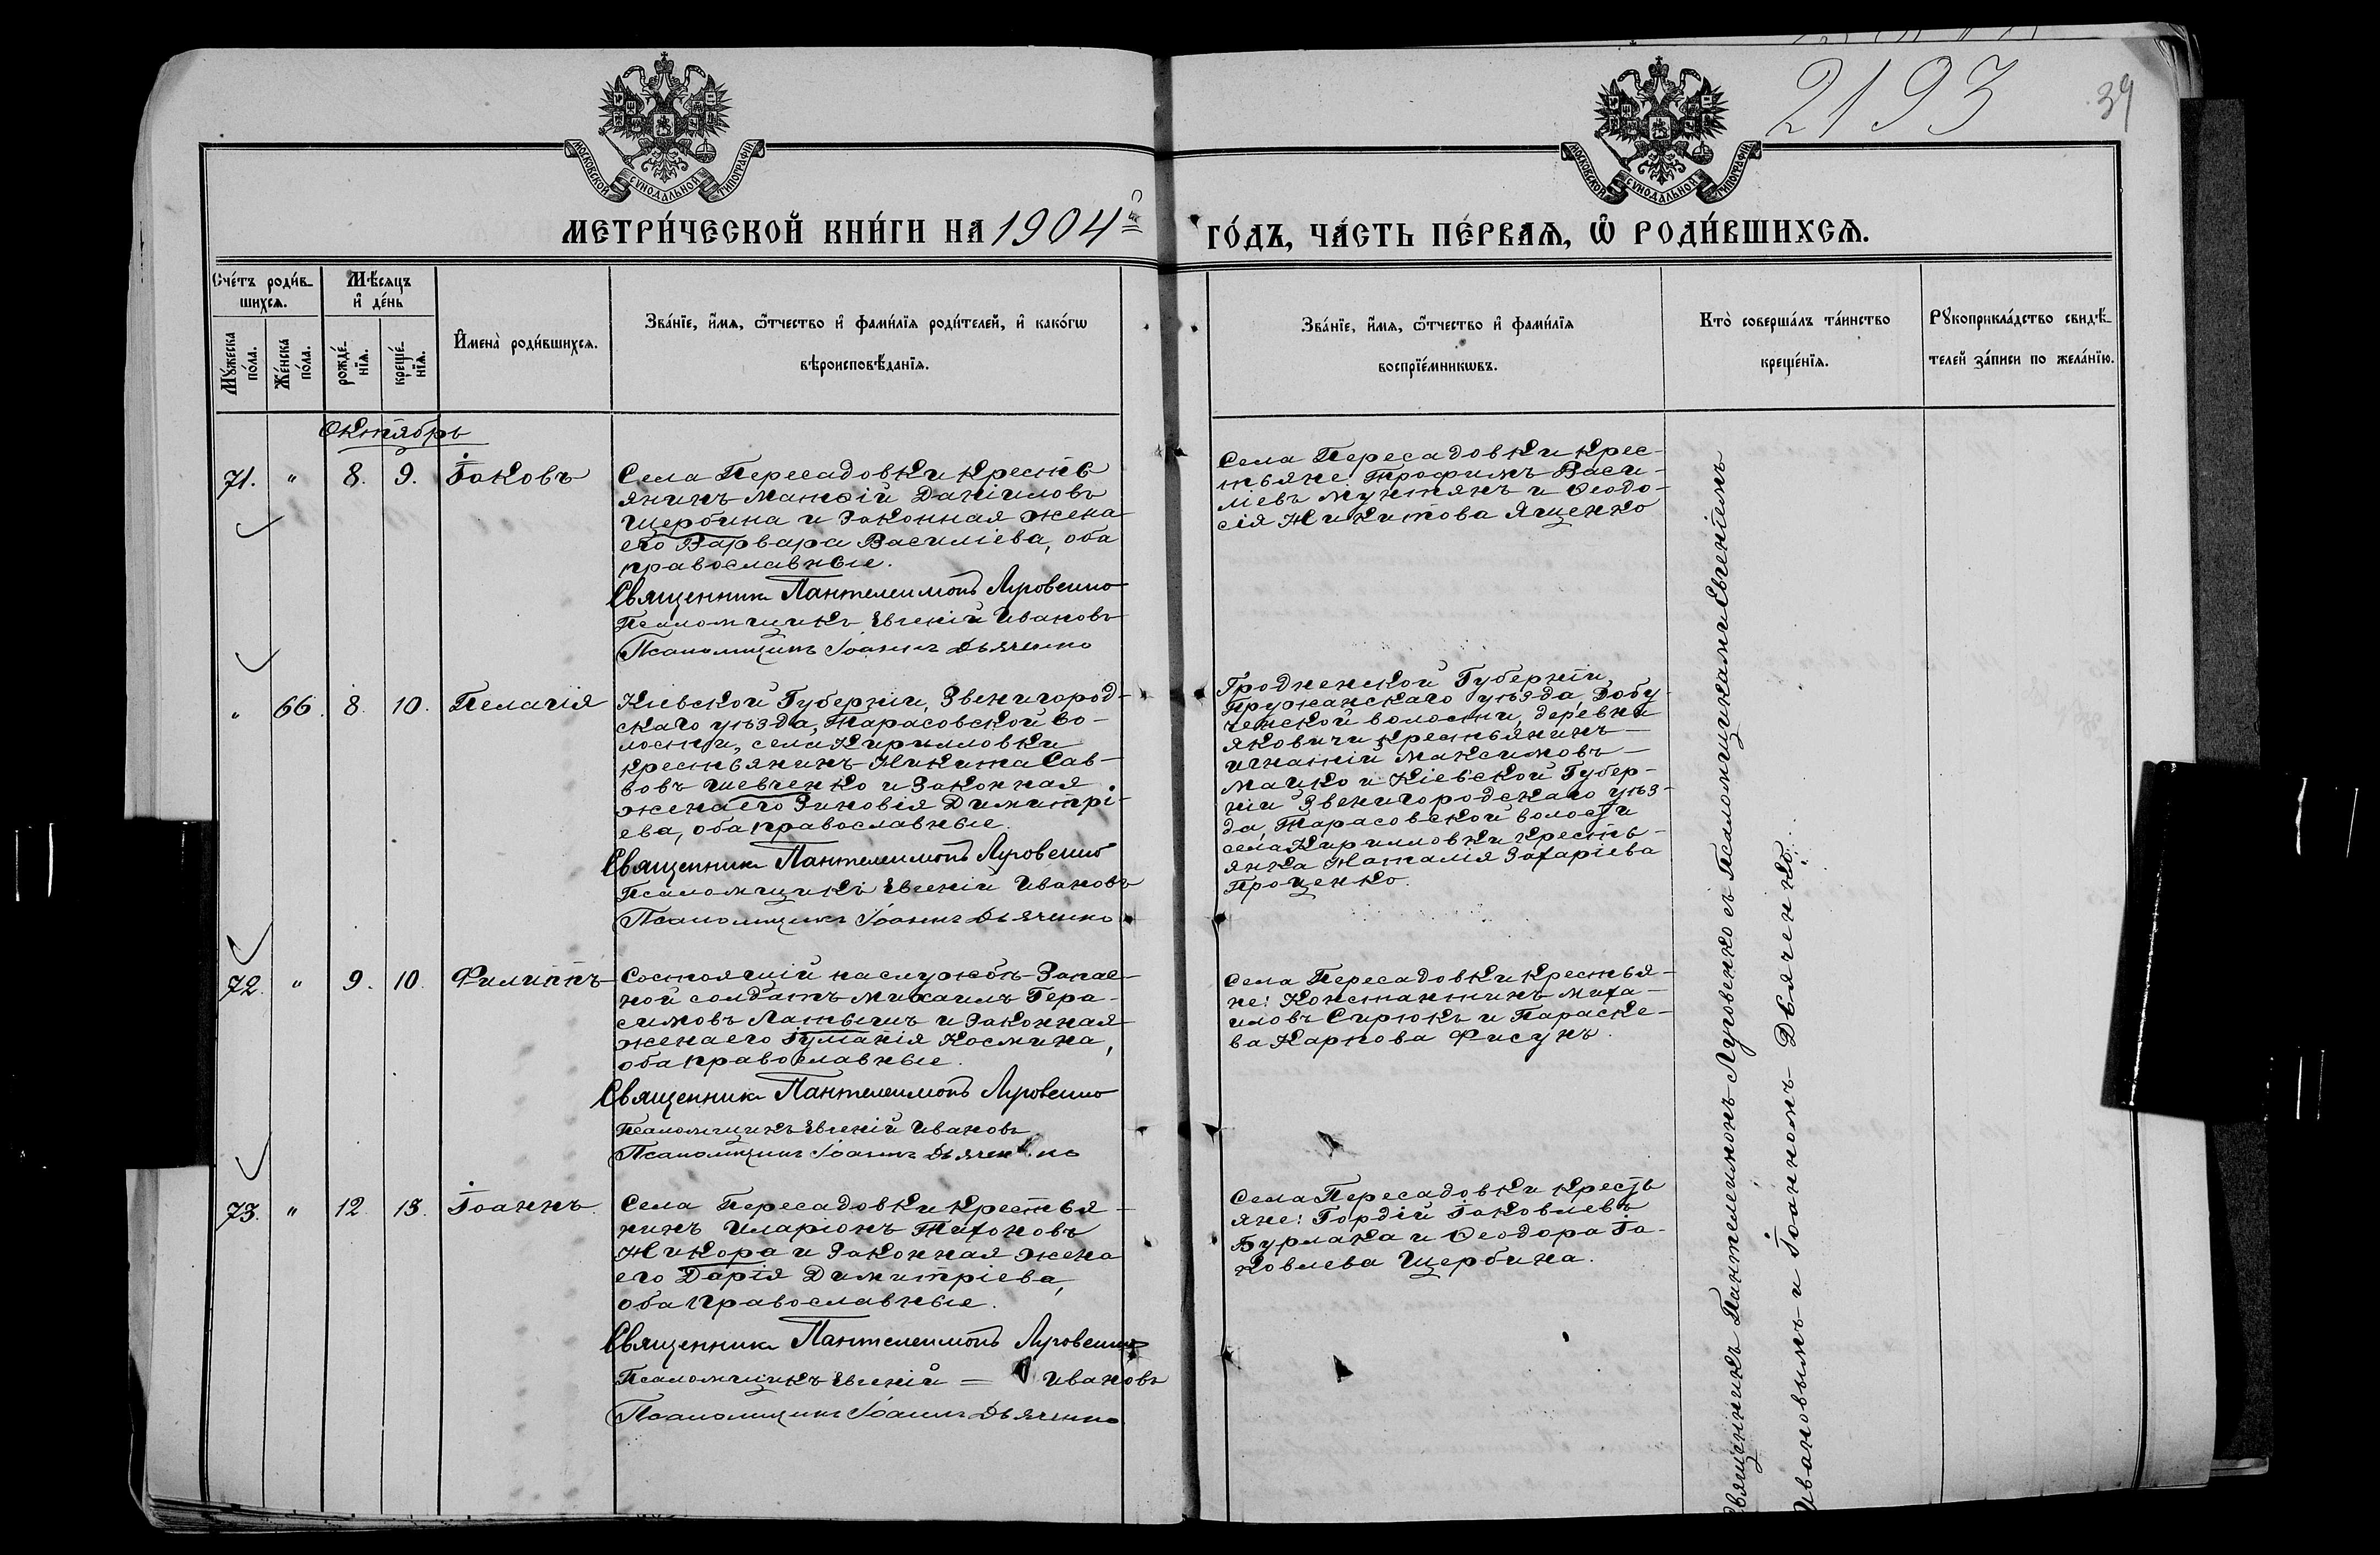 2193
39
МОСКОВСКОЙ СУНОДАЛЬНОЙ ТИПОГРАФІИ
МОСКОВСКОЙ СУНОДАЛЬНОЙ ТИПОГРАФІИ
МЕТРИ́ЧЕСКОЙ КНИ́ГИ НА 1904й ГО́ДЪ, ЧА́СТЬ ПЕ́РВАѦ, Ѡ҆ РОДИ́ВШИХСѦ.
Сче́тъ роди́в-
шихсѧ.
Мѣ́сѧцъ
и҆ де́нь
Мꙋ́жеска
по́ла.
Же́нска
по́ла.
рожде́-
нїѧ.
креще́-
нїѧ.
И҆мена̀ роди́вшихсѧ.
Зва́нїе, и҆́мѧ, ѻ҆́тчество и҆ фами́лїѧ роди́телей, и҆ како́гѡ
вѣроисповѣ́данїѧ.
Зва́нїе, и҆́мѧ, ѻ҆́тчество и҆ фами́лїѧ
воспрїе́мникѡвъ.
Кто̀ соверша́лъ та́инство
креще́нїѧ.
Рꙋкоприкла́дство свидѣ́-
телей за́писи по жела́нїю.
Октябрь
71. " 8. 9. Іаковъ
Села Пересадовки кресть
янинъ Манѳій Даніиловъ
Щербина и законная жена
его Варвара Василіева, оба
православные.
Священникъ Пантелеимонъ Луговенко
Псаломщикъ Евгеній Ивановъ
Псаломщикъ Іоаннъ Дьяченко
Села Пересадовки крес-
тьяне: Трофимъ Васи-
ліевъ Мунтянъ и Ѳеодо-
сія Никитова Ященко
" 66. 8. 10. Пелагія
Кіевской Губерніи, Звенигород-
скаго уѣзда, Тарасовской во-
лости, села Кирилловки
крестьянинъ Никита Сав-
вовъ Шевченко и законная
жена его Зиновія Димитрі-
ева, оба православные.
Священникъ Пантелеимонъ Луговенко
Псаломщикъ Евгеній Ивановъ
Псаломщикъ Іоаннъ Дьяченко
Гродненской Губерніи,
Пружанскаго уѣзда, Добу-
ченской волости, деревни
Яковичи крестьянинъ
Игнатій Максимовъ
Мацко и Кіевской Губер-
ніи Звенигородскаго уѣз-
да, Тарасовской волости
села Кирилловки кресть-
янка Наталія Захаріева
Проценко.
72. " 9. 10. Филиппъ
Состоящій на службѣ Запас-
ной солдатъ Михаилъ Гера-
симовъ Латышъ и законная
жена его Гуманія Космина,
оба православные.
Священникъ Пантелеимонъ Луговенко
Псаломщикъ Евгеній Ивановъ
Псаломщикъ Іоаннъ Дьяченко
Села Пересадовки крестья-
не: Константинъ Миха-
иловъ Сирюкъ и Параске-
ва Карпова Фисунъ.
73. " 12. 13. Іоаннъ.
Села Пересадовки крестья-
нинъ Иларіонъ Тихоновъ
Никора и законная жена
его Дарія Димитріева,
оба православные.
Священникъ Пантелеимонъ Луговенко
Псаломщикъ Евгеній — Ивановъ
Псаломщикъ Іоаннъ Дьяченко
Села Пересадовки кресть
яне: Гордій Іаковлевъ
Бурлака и Ѳеодора Іа-
ковлева Щербина.
Священникъ Пантелеимонъ Луговенко съ Псаломщиками Евгеніемъ
Ивановымъ и Іоанномъ Дьяченко.